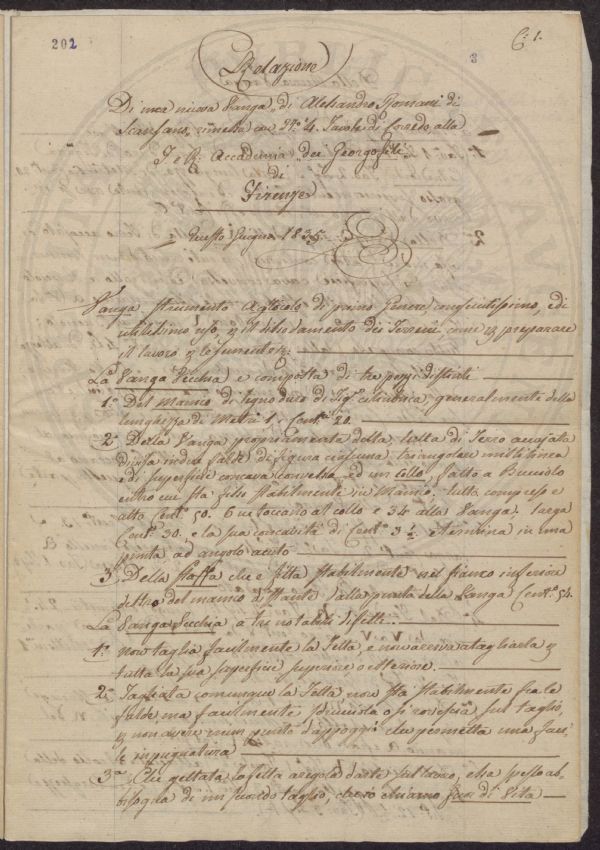 202
C. 1.
3
Relazione
Di una nuova Vanga, di Alessandro Romani di
Scansano, rimessa con N.o 4. Tavole di Corredo, alla
I e R: Accademia dei Georgofili
di
Firenze
Questo Giugno 1835.
Vanga strumento Agricolo di primo Genere conosciutissimo, e di
utilissimo uso, p il dei Terreni come p preparare
il lavoro p le sumente.
La Vanga Vecchia e composta di tre pezzi distinti
1.o Del Manico di legno duro di Fig.a cilindrica, generalmente della
lunghezza di Metri 1. Cent.i 20.
2.o Della Vanga propriamente detta, tutta di Ferro acciajata
divisa in due falde di figura ciascuna triangolare mistilinea
e di superficie concava convessa ed un Collo fatto a Bucciolo
entro cui sta fisso stabilmente in Manico, tutta compreso e
alto Cent.i 50. 6 ne toccano al collo e 34 alla Vanga, larga
Cent.i 30. e la sua concavità di Cent.i 3 1/2. e termina in una
punta ad angolo acuto
3.o Della Staffa che e fitta stabilmente nel fianco inferiore
destro del manico distante dalla punta della Vanga Cent.i 54.
La Vanga Vecchia a tre notabili difetti.
1.o non taglia facilmente la Fetta, e non arriva a tagliarla p
tutta la sua superficie superiore o esteriore.
2.o Tagliata comunque la Fetta non sta stabilmente fra le
falde, ma facilmente sdrucciola o si rovescia sul taglio,
p non avere niun punto d'appoggio che permetta una faci-
le impugnatura
3.o Che gettata la fetta a regola d'arte sul lavoro, essa spesso ab-
bisogna di un secondo taglio, che si chiama dare di Vita